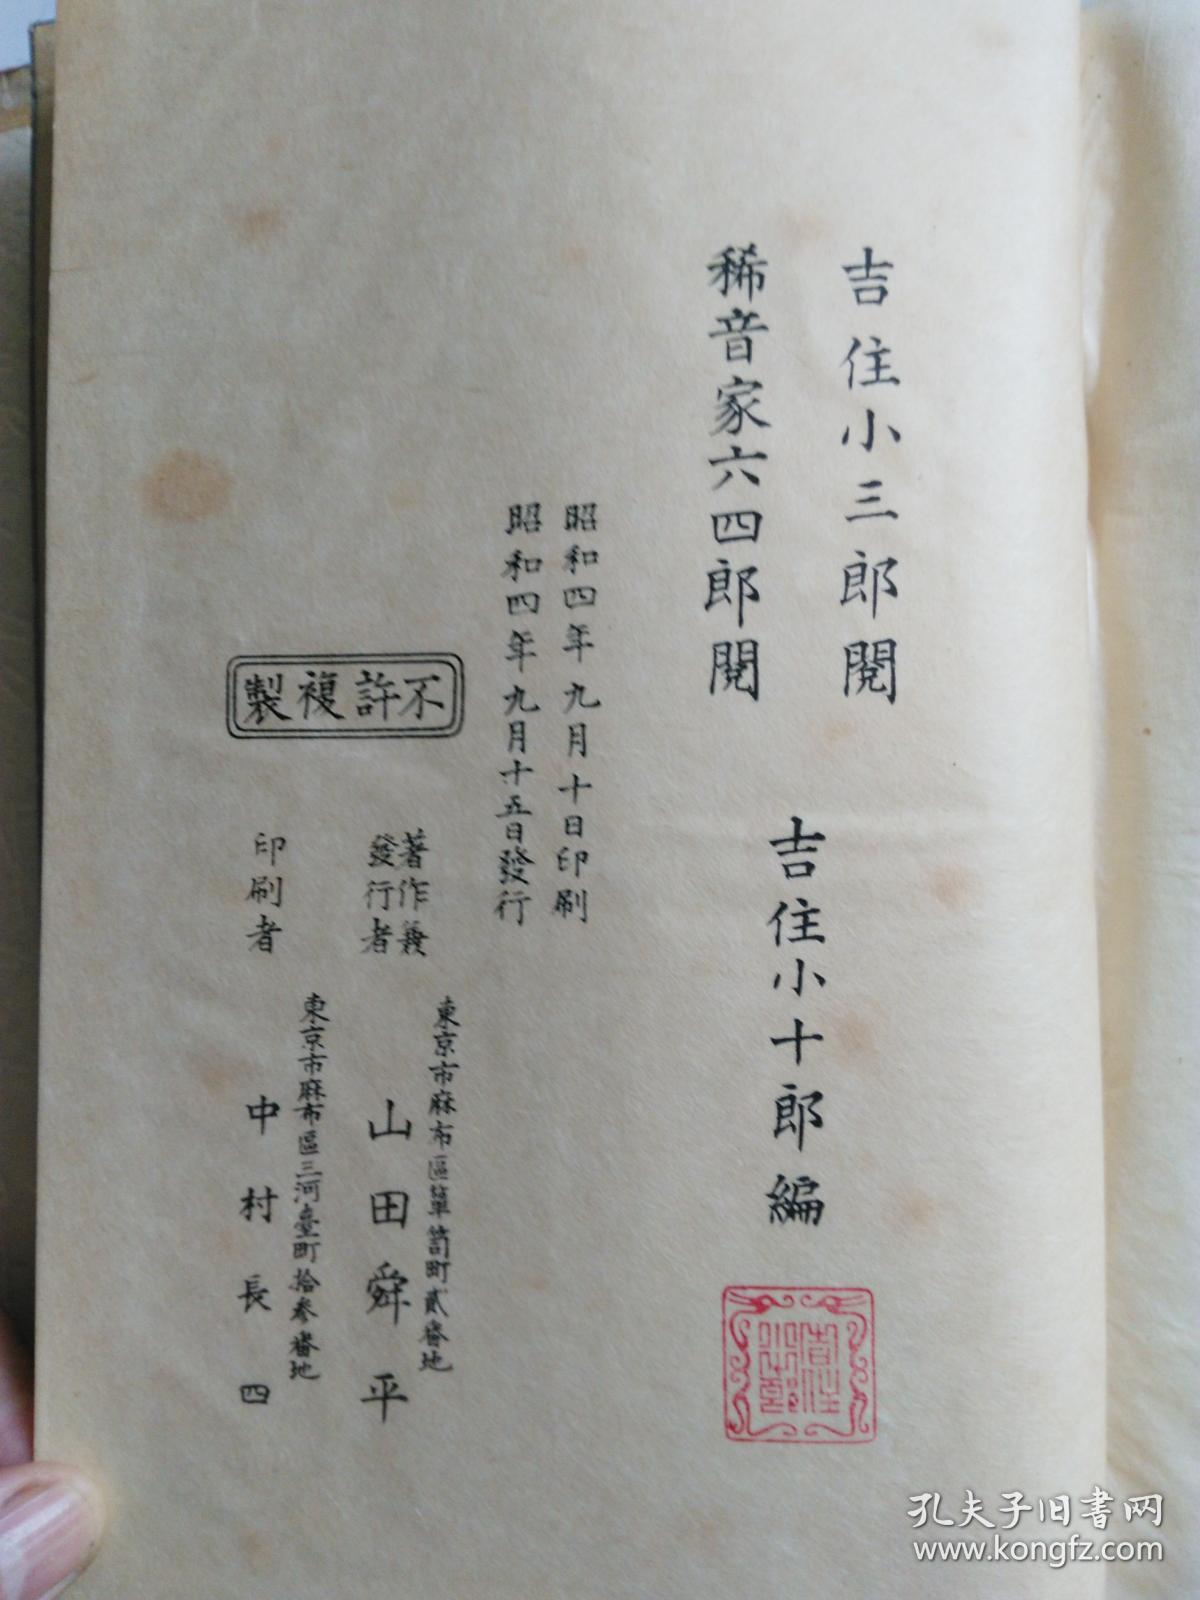 吉住小三郎閲
稀音家六四郎閲
吉住小十郎編
昭和四年九月十日印刷
昭和四年九月十五日發行
不許複製
著作兼
發行者
東京市麻布區簞笥町貳番地
山田舜平
印刷者
東京市麻布區三河臺町拾參番地
中村長四
孔夫子旧书网
www.kongfz.com